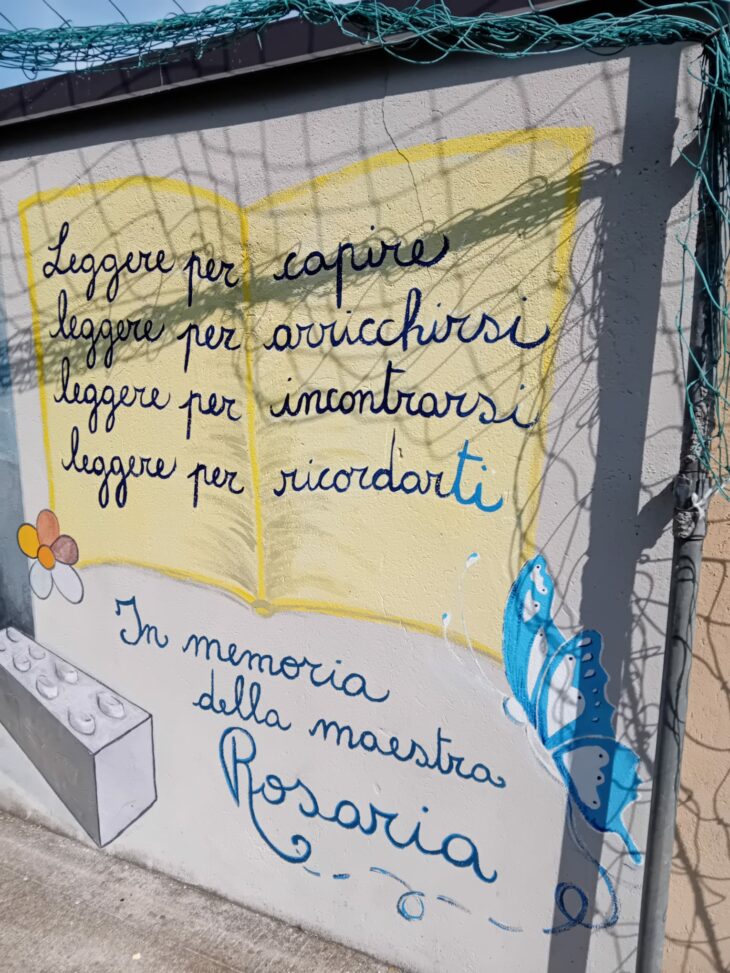 Leggere per capire
leggere per arricchirsi
leggere per incontrarsi
leggere per ricordarti
In memoria
della maestra
Rosaria